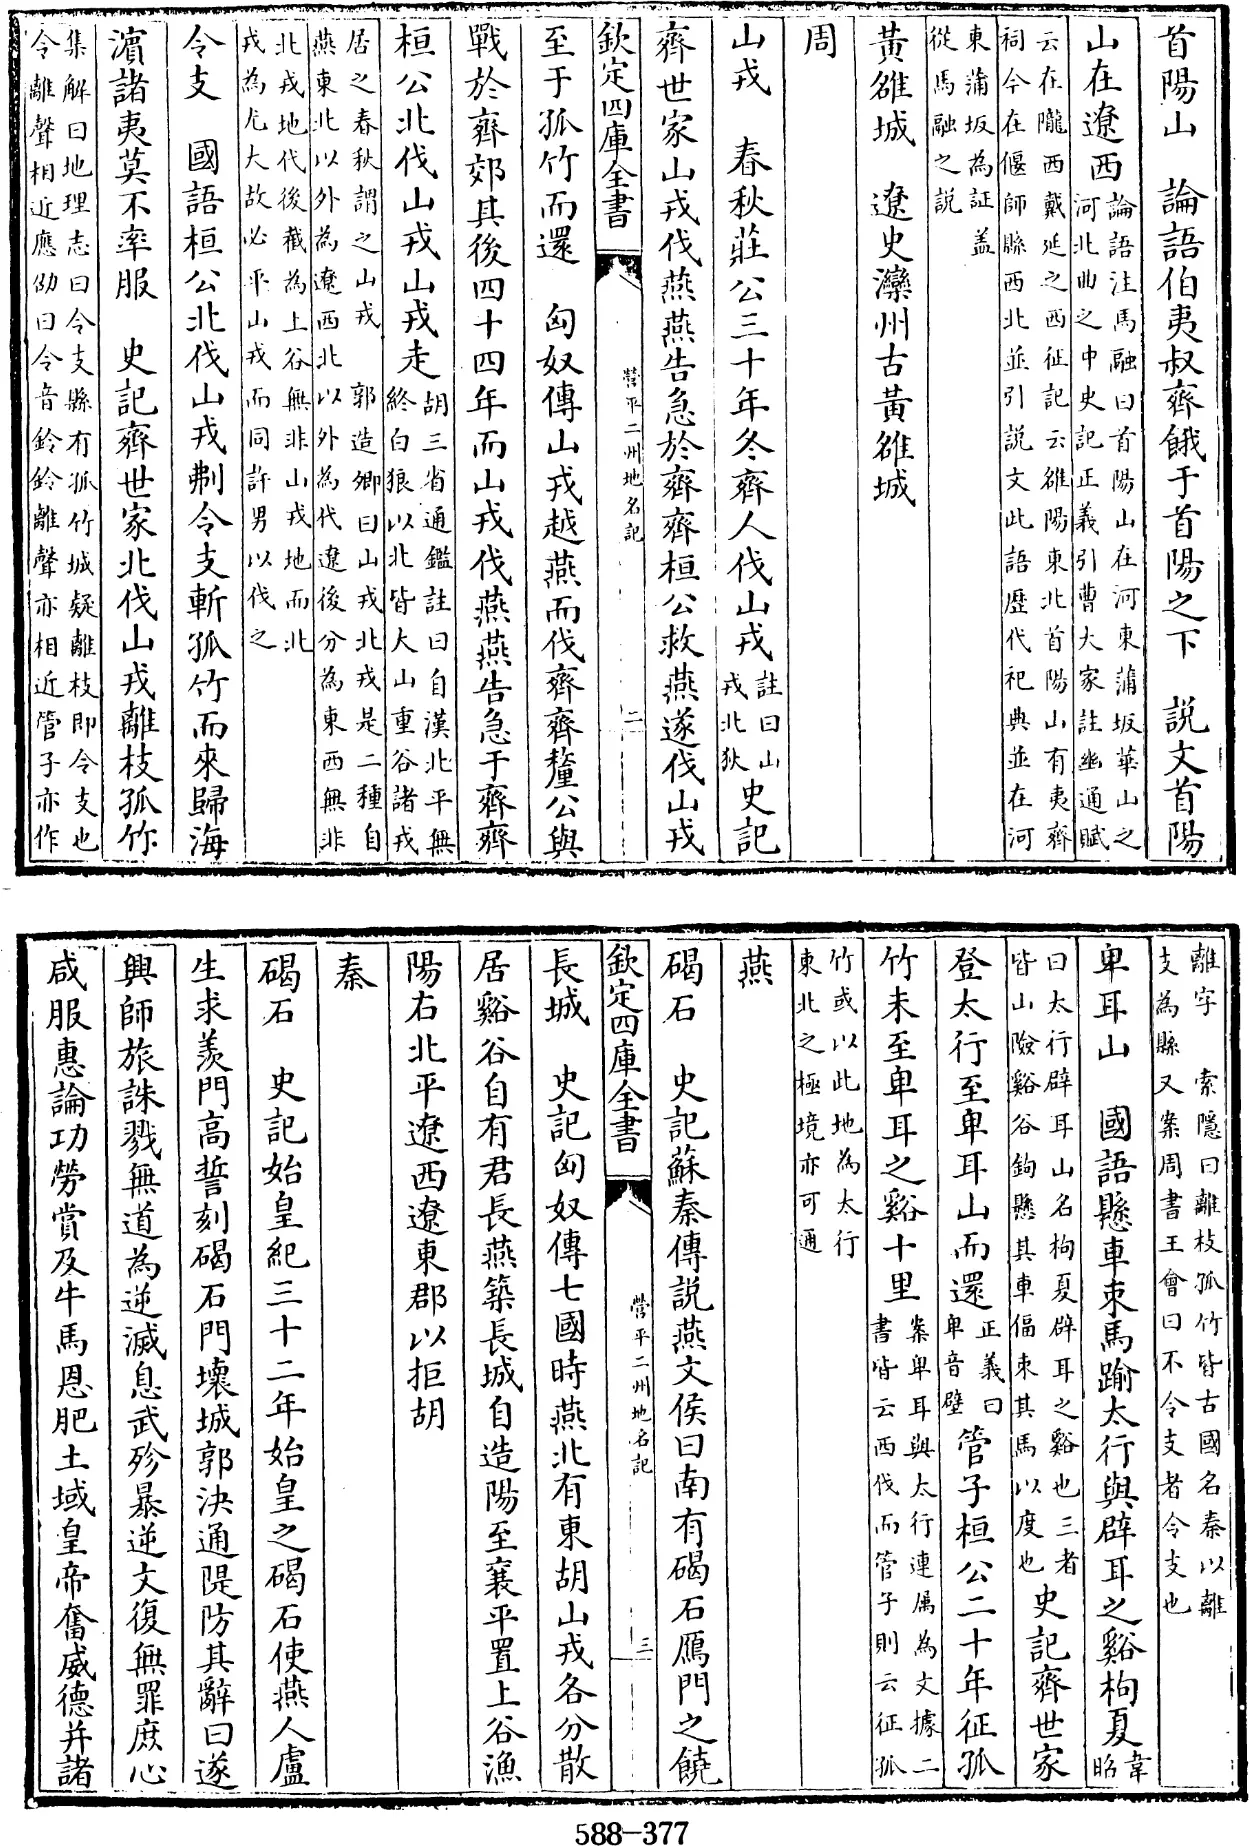 首陽山　論語伯夷叔齊餓于首陽之下　說文首陽
山在遼西論語注馬融曰首陽山在河東蒲坂華山之河北曲之中史記正義引曹大家註幽通賦
云在隴西戴延之西征記云雒陽東北首陽山有夷齊祠今在偃師縣西北並引說文此語歷代祀典並在河
東蒲坂為証盖從馬融之說
黃雒城　遼史灤州古黃雒城
周
山戎　春秋莊公三十年冬齊人伐山戎註曰山戎北狄史記
齊世家山戎伐燕燕告急於齊齊桓公救燕遂伐山戎
欽定四庫全書　營平二州地名記　二
至于孤竹而還　匈奴傳山戎越燕而伐齊齊釐公與
戰於齊郊其後四十四年而山戎伐燕燕告急于齊齊
桓公北伐山戎山戎走胡三省通鑑註曰自漢北平無終白狼以北皆大山重谷諸戎
居之春秋謂之山戎　郭造卿曰山戎北戎是二種自燕東北以外為遼西北以外為代遼後分為東西無非
北戎地代後藏為上谷無非山戎地而北戎為尤大故必平山戎而同許男以伐之
令支　國語桓公北伐山戎刜令支斬孤竹而來歸海
濵諸夷莫不率服　史記齊世家北伐山戎離枝孤竹
集解曰地理志曰令支縣有孤竹城疑離枝即令支也令離聲相近應劭曰令音鈴鈴離聲亦相近管子亦作
離字　索隱曰離枝孤竹皆古國名秦以離支為縣又案周書王會曰不令支者令支也
卑耳山　國語懸車束馬踰太行與辟耳之谿枸夏韋昭
曰太行辟耳山名枸夏辟耳之谿也三者皆山險谿谷鉤懸其車偪束其馬以度也史記齊世家
登太行至卑耳山而還正義曰卑音壁管子桓公二十年征孤
竹未至卑耳之谿十里案卑耳與太行連属為文據二書皆云西伐而管子則云征孤
竹或以此地為太行東北之極境亦可通
燕
碣石　史記蘇秦傳說燕文侯曰南有碣石鴈門之饒
欽定四庫全書　營平二州地名記　三
長城　史記匈奴傳七國時燕北有東胡山戎各分散
居谿谷自有君長燕築長城自造陽至襄平置上谷漁
陽右北平遼西遼東郡以拒胡
秦
碣石　史記始皇紀三十二年始皇之碣石使燕人盧
生求羨門高誓刻碣石門壞城郭決通隄防其辭曰遂
興師旅誅戮無道為逆滅息武殄暴逆文復無罪庶心
咸服惠論功勞賞及牛馬恩肥土域皇帝奮威德并諸
588-377